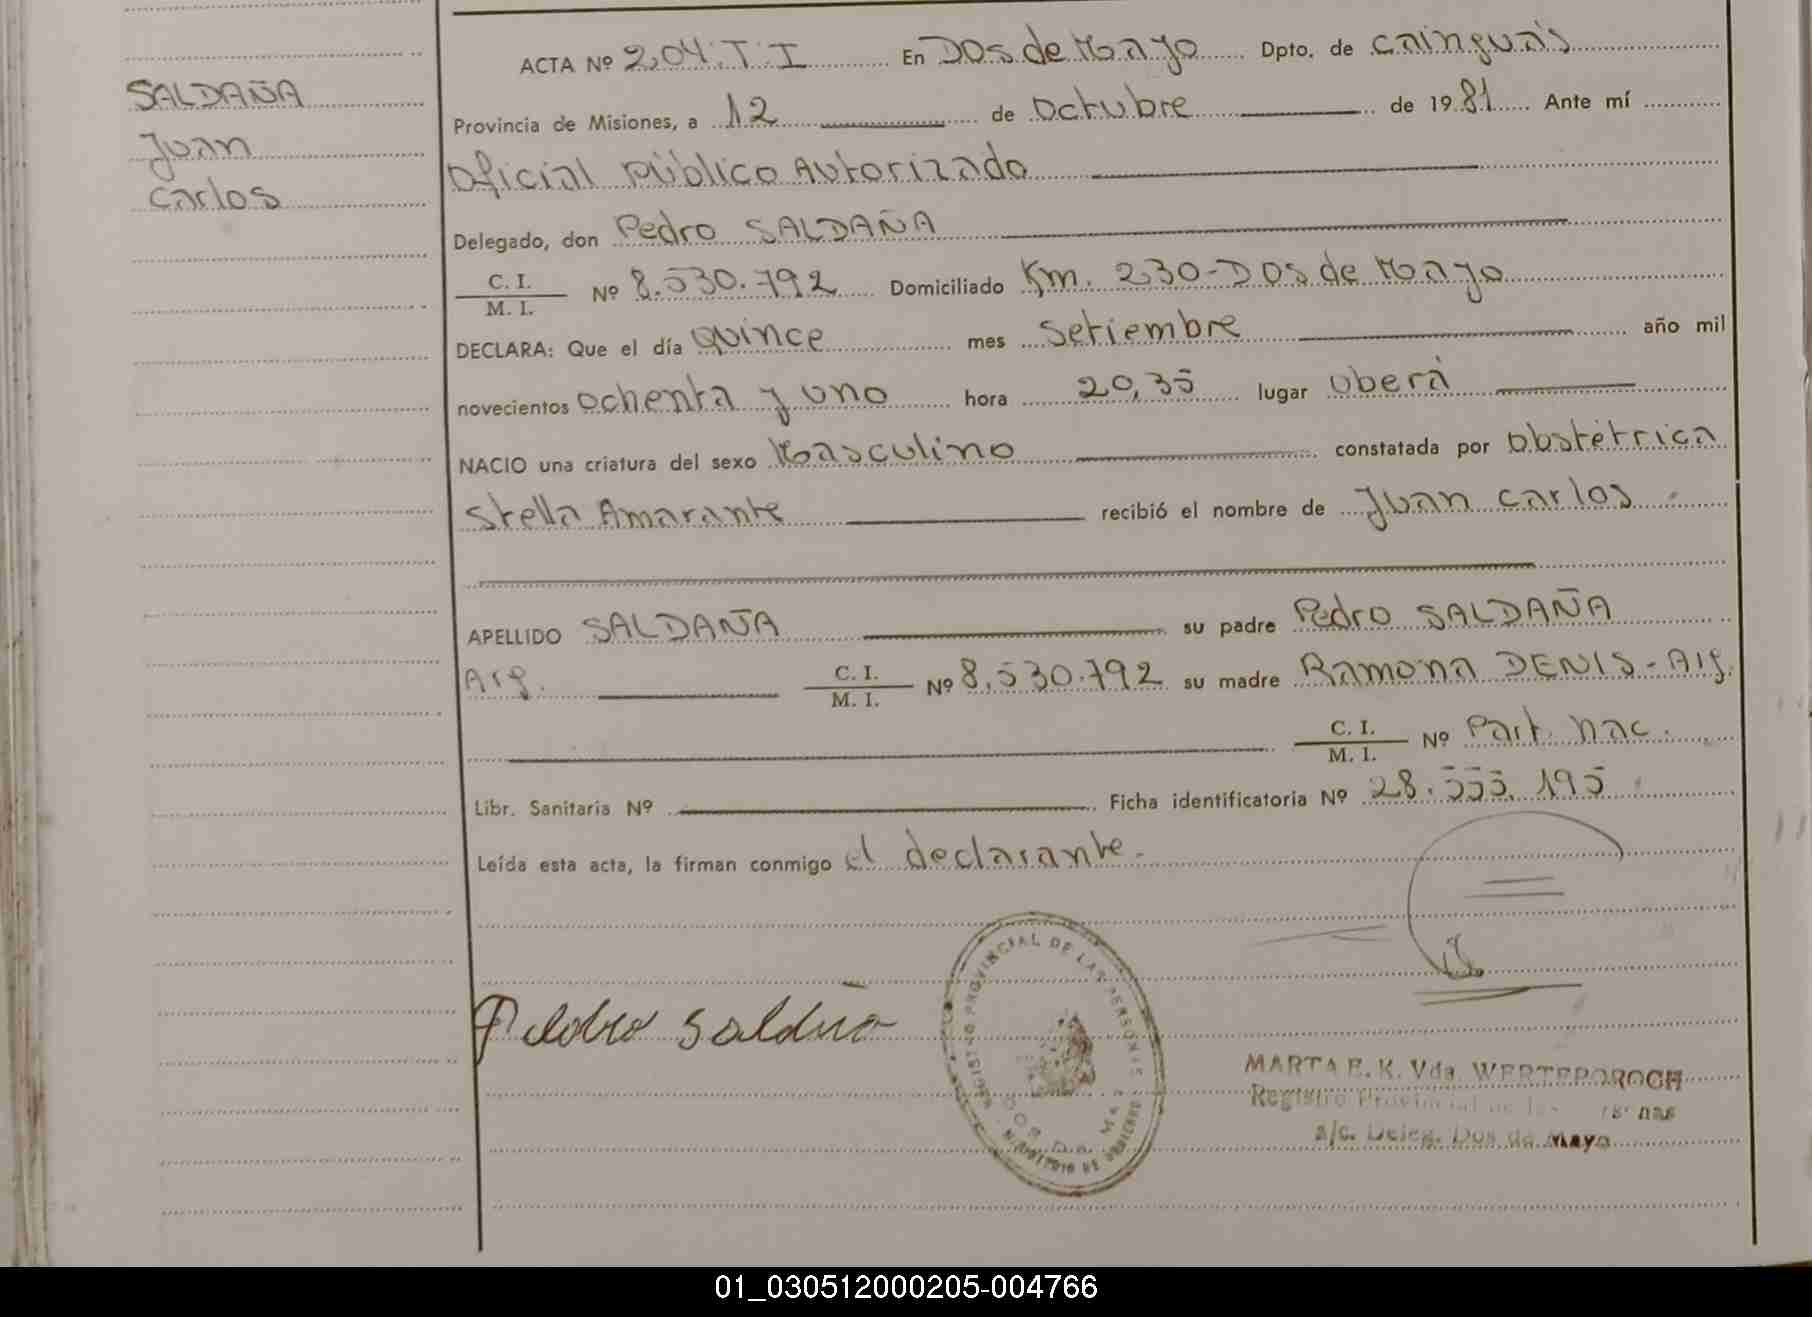 SALDAÑA
Juan
Carlos
ACTA Nº 204.T.I En Dos de Mayo Dpto. de Cainguás
Provincia de Misiones, a 12 de Octubre de 1981 Ante mí
Oficial Público Autorizado
Delegado, don Pedro SALDAÑA
C. I.
M. I. Nº 8.530.792 Domiciliado Km. 230-Dos de Mayo
DECLARA: Que el día quince mes Setiembre año mil
novecientos ochenta y uno hora 20,35 lugar Oberá
NACIO una criatura del sexo Masculino constatada por Obstétrica
Stella Amarante recibió el nombre de Juan Carlos
APELLIDO SALDAÑA su padre Pedro SALDAÑA
Arg. C. I. M. I. Nº 8.530.792 su madre Ramona DENIS - Arg.
C. I. M. I. Nº Part. Nac.
Libr. Sanitaria Nº Ficha identificatoria Nº 28.555.195
Leída esta acta, la firman conmigo el declarante.
Pedro Saldaña
REGISTRO PROVINCIAL DE LAS PERSONAS
DOS DE MAYO
MARTA E. K. Vda. WERTEROROCH
Registro Provincial de las Personas
a/c. Deleg. Dos de Mayo
01_030512000205-004766